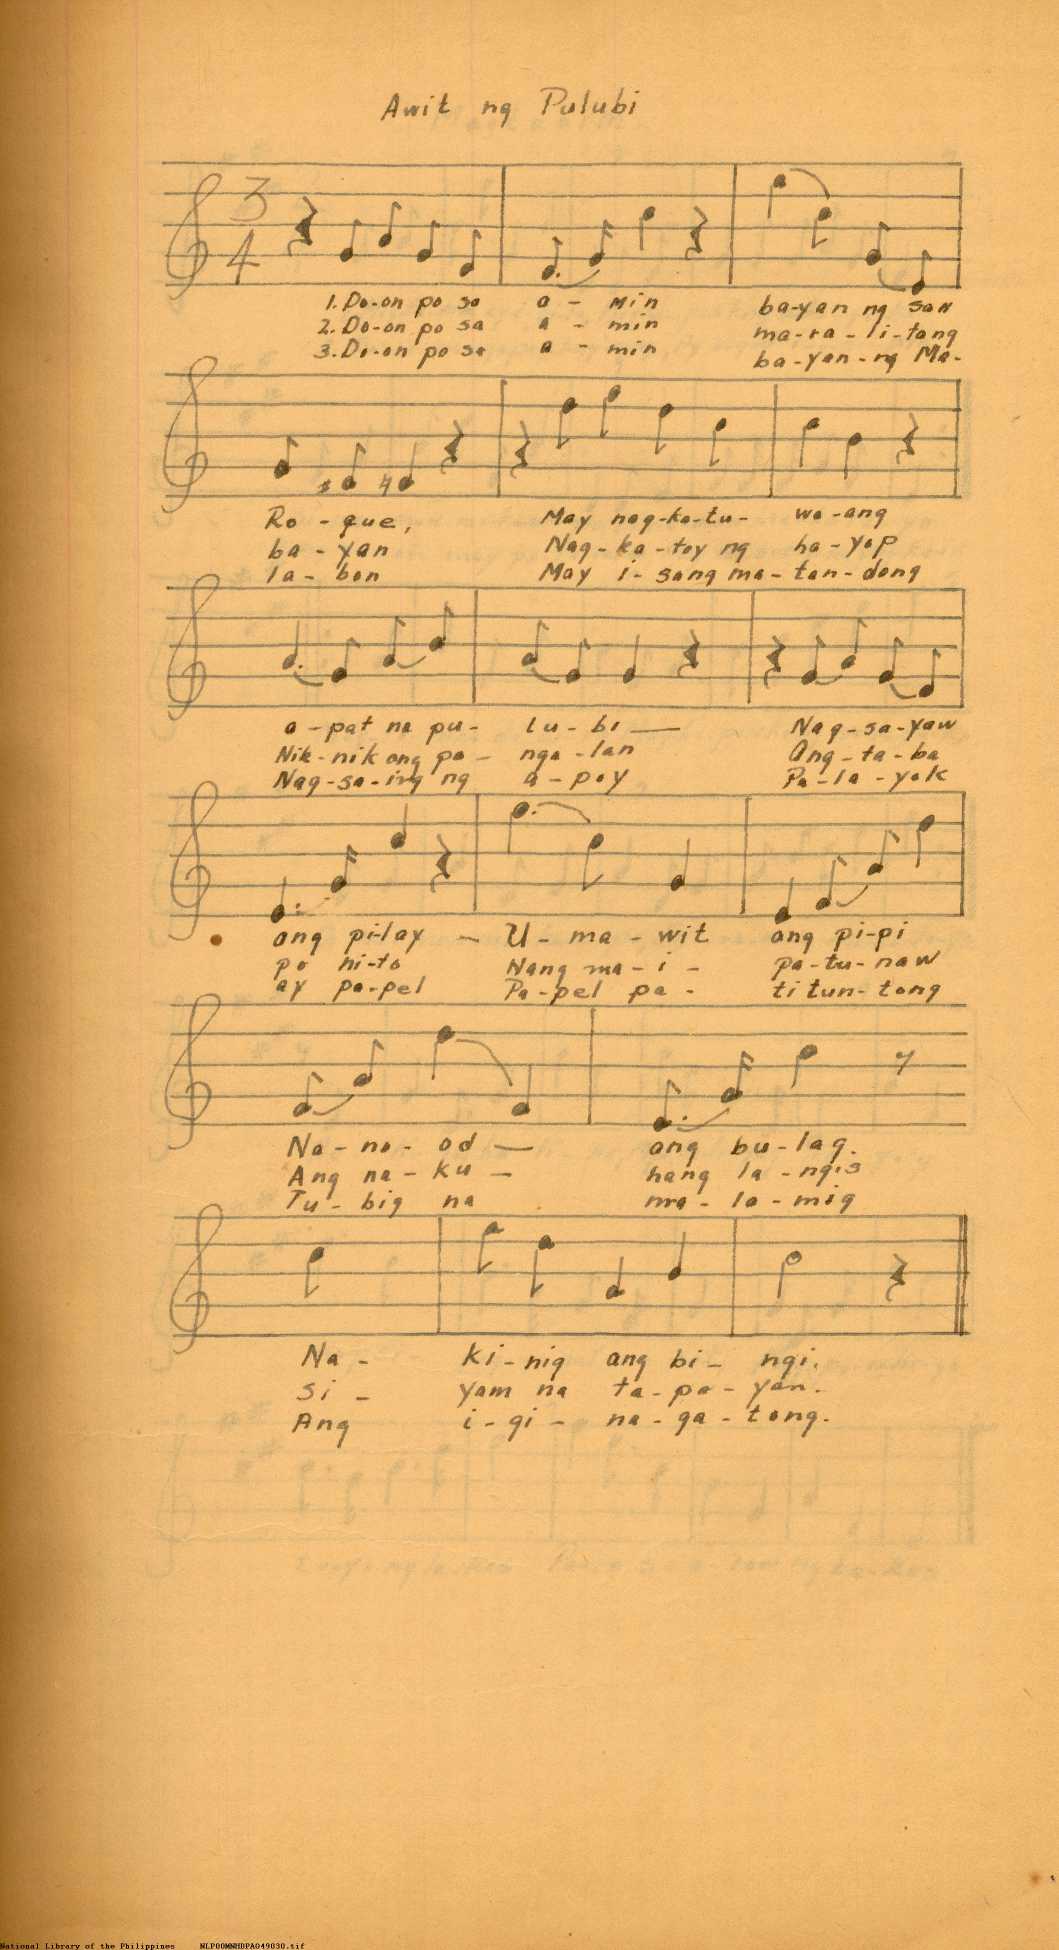 Awit ng Pulubi
3
4
1. Do-on po sa a - min ba-yan ng san
2. Do-on po sa a - min ma-ra-li-tang
3. Do-on po sa a - min ba-yan-ng Ma-
Ro - que, May nag-ka-tu- wa-ang
ba - yan Nag-ka-tay ng ha-yop
la - bon May i-sang ma-tan-dang
a-pat na pu- lu-bi — Nag-sa-yaw
Nik-nik ang pa- nga-lan Ang-ta-ba
Nag-sa-ing ng a-poy Pa-la-yok
ang pi-lay — U-ma-wit ang pi-pi
po ni-to Nang ma-i- pa-tu-naw
ay pa-pel Pa-pel pa- ti tun-tong
Na-no-od — ang bu-lag.
Ang na-ku — hang la-ngis
Tu-big na ma-la-mig
Na - ki-nig ang bi- ngi.
Si - yam na ta-pa-yan.
Ang i-gi- na-ga-tong.
National Library of the Philippines NLP00MNHDPA049030.tif